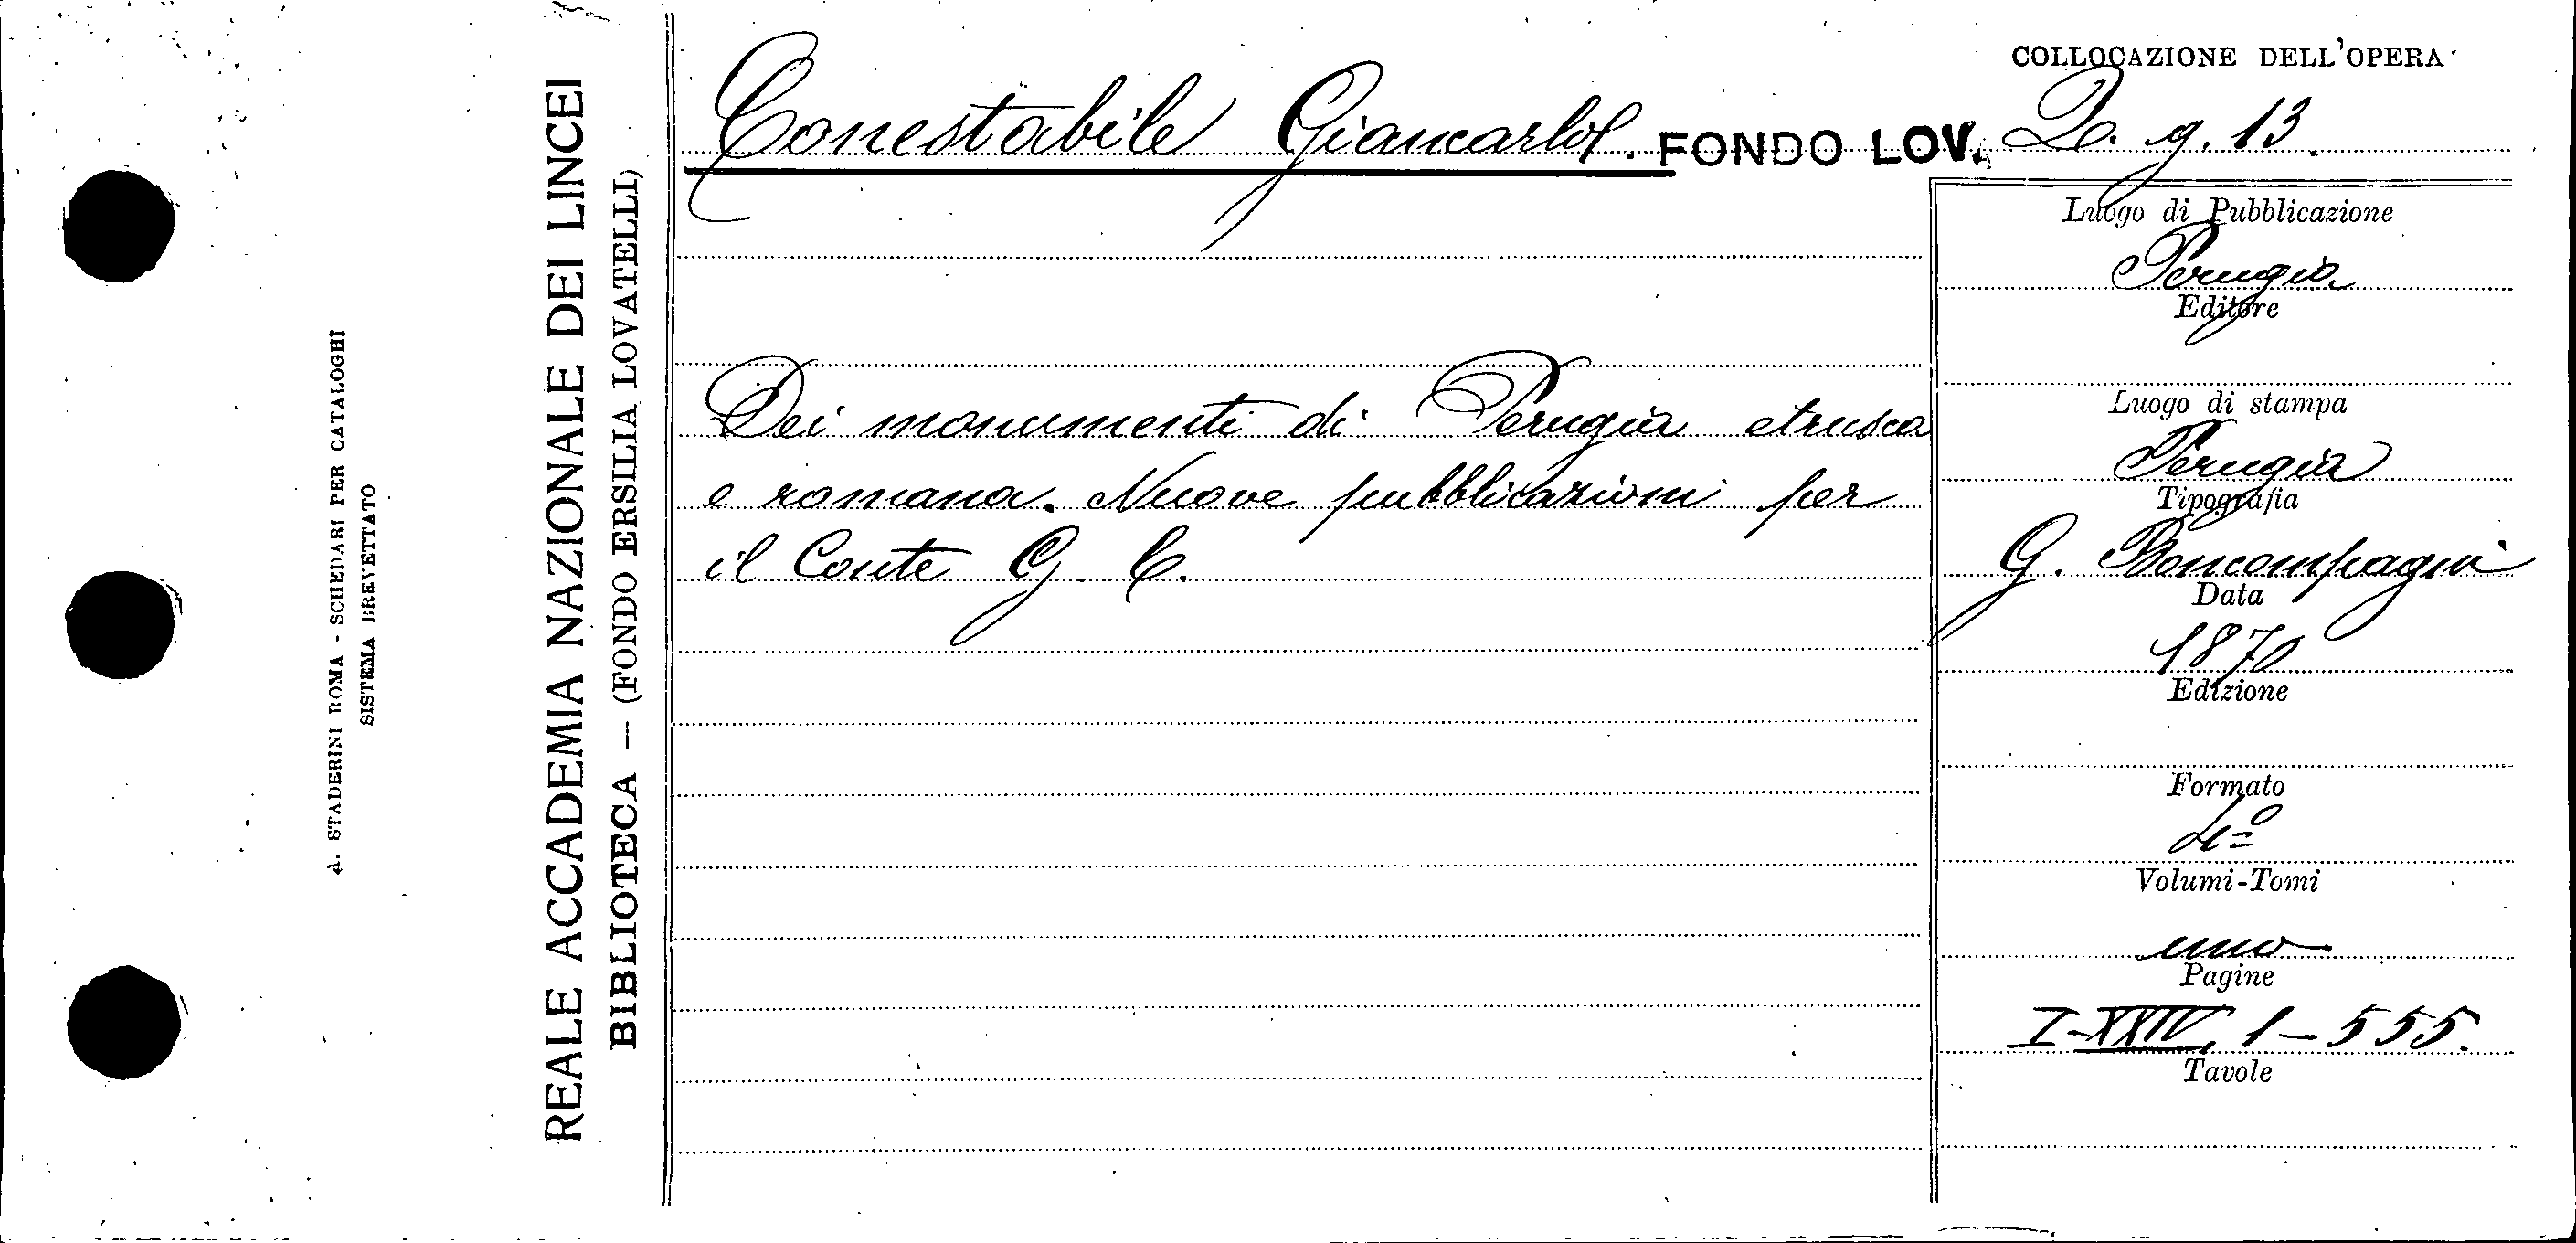 COLLOCAZIONE DELL'OPERA
Conestabile Giancarlo. FONDO LOV. 2a. g. 13.
Dei monumenti di Perugia etrusca
e romana. Nuove pubblicazioni per
il Conte G. C.
Luogo di Pubblicazione
Perugia
Editore
Luogo di stampa
Perugia
Tipografia
G. Boncompagni
Data
1870
Edizione
Formato
4º
Volumi-Tomi
uno
Pagine
I-XXIV, 1-555.
Tavole
REALE ACCADEMIA NAZIONALE DEI LINCEI
BIBLIOTECA — (FONDO ERSILIA LOVATELLI)
A. STADERINI ROMA - SCHEDARI PER CATALOGHI
SISTEMA BREVETTATO